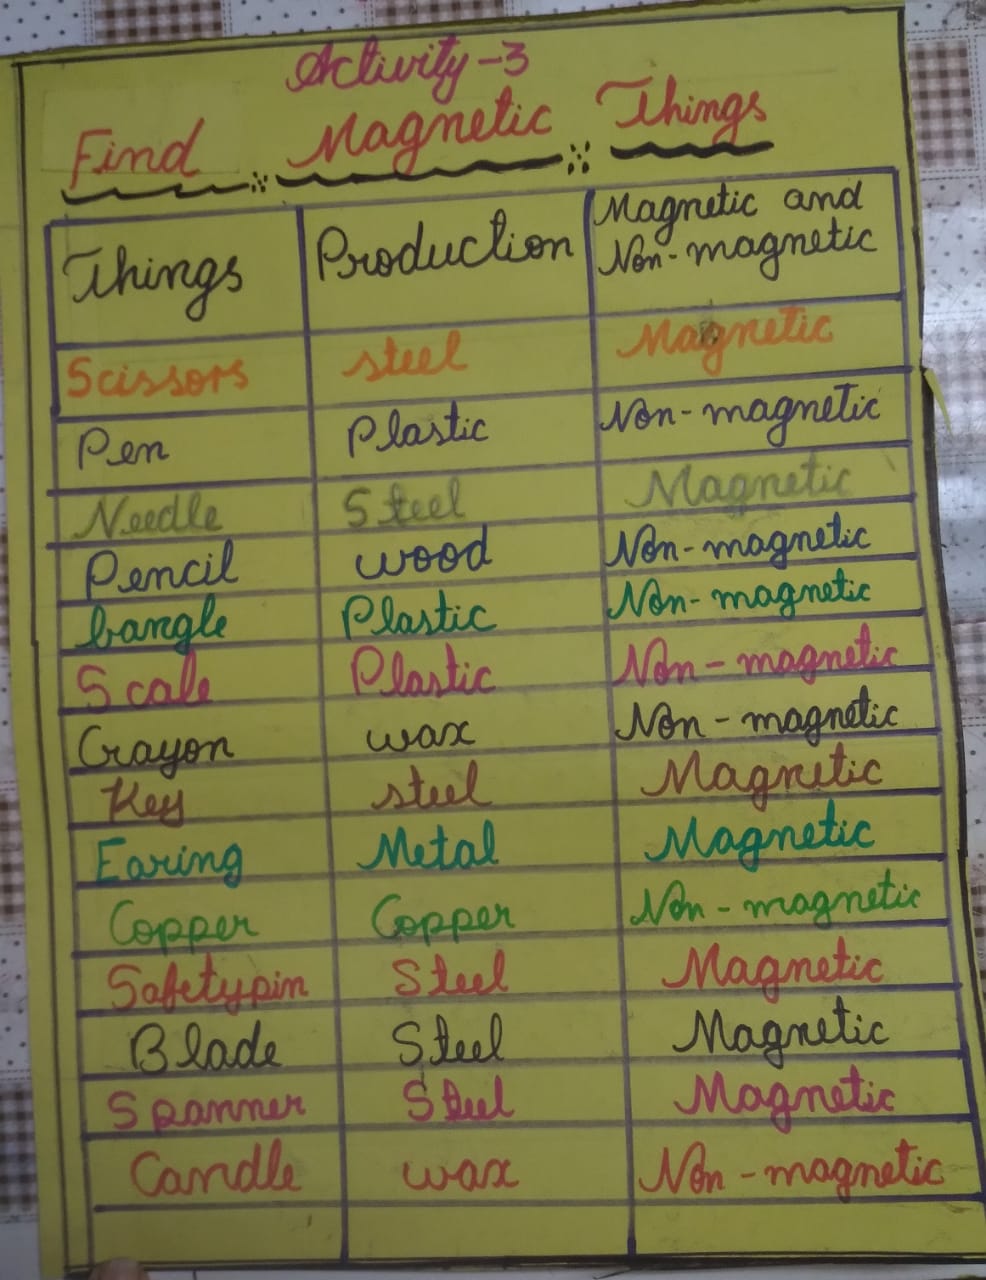 Activity-3
Find Magnetic Things
Things Production Magnetic and Non-magnetic
Scissors steel Magnetic
Pen Plastic Non-magnetic
Needle Steel Magnetic
Pencil wood Non-magnetic
bangle Plastic Non-magnetic
Scale Plastic Non-magnetic
Crayon wax Non-magnetic
Key steel Magnetic
Earing Metal Magnetic
Copper Copper Non-magnetic
Safetypin Steel Magnetic
Blade Steel Magnetic
Spanner Steel Magnetic
Candle wax Non-magnetic